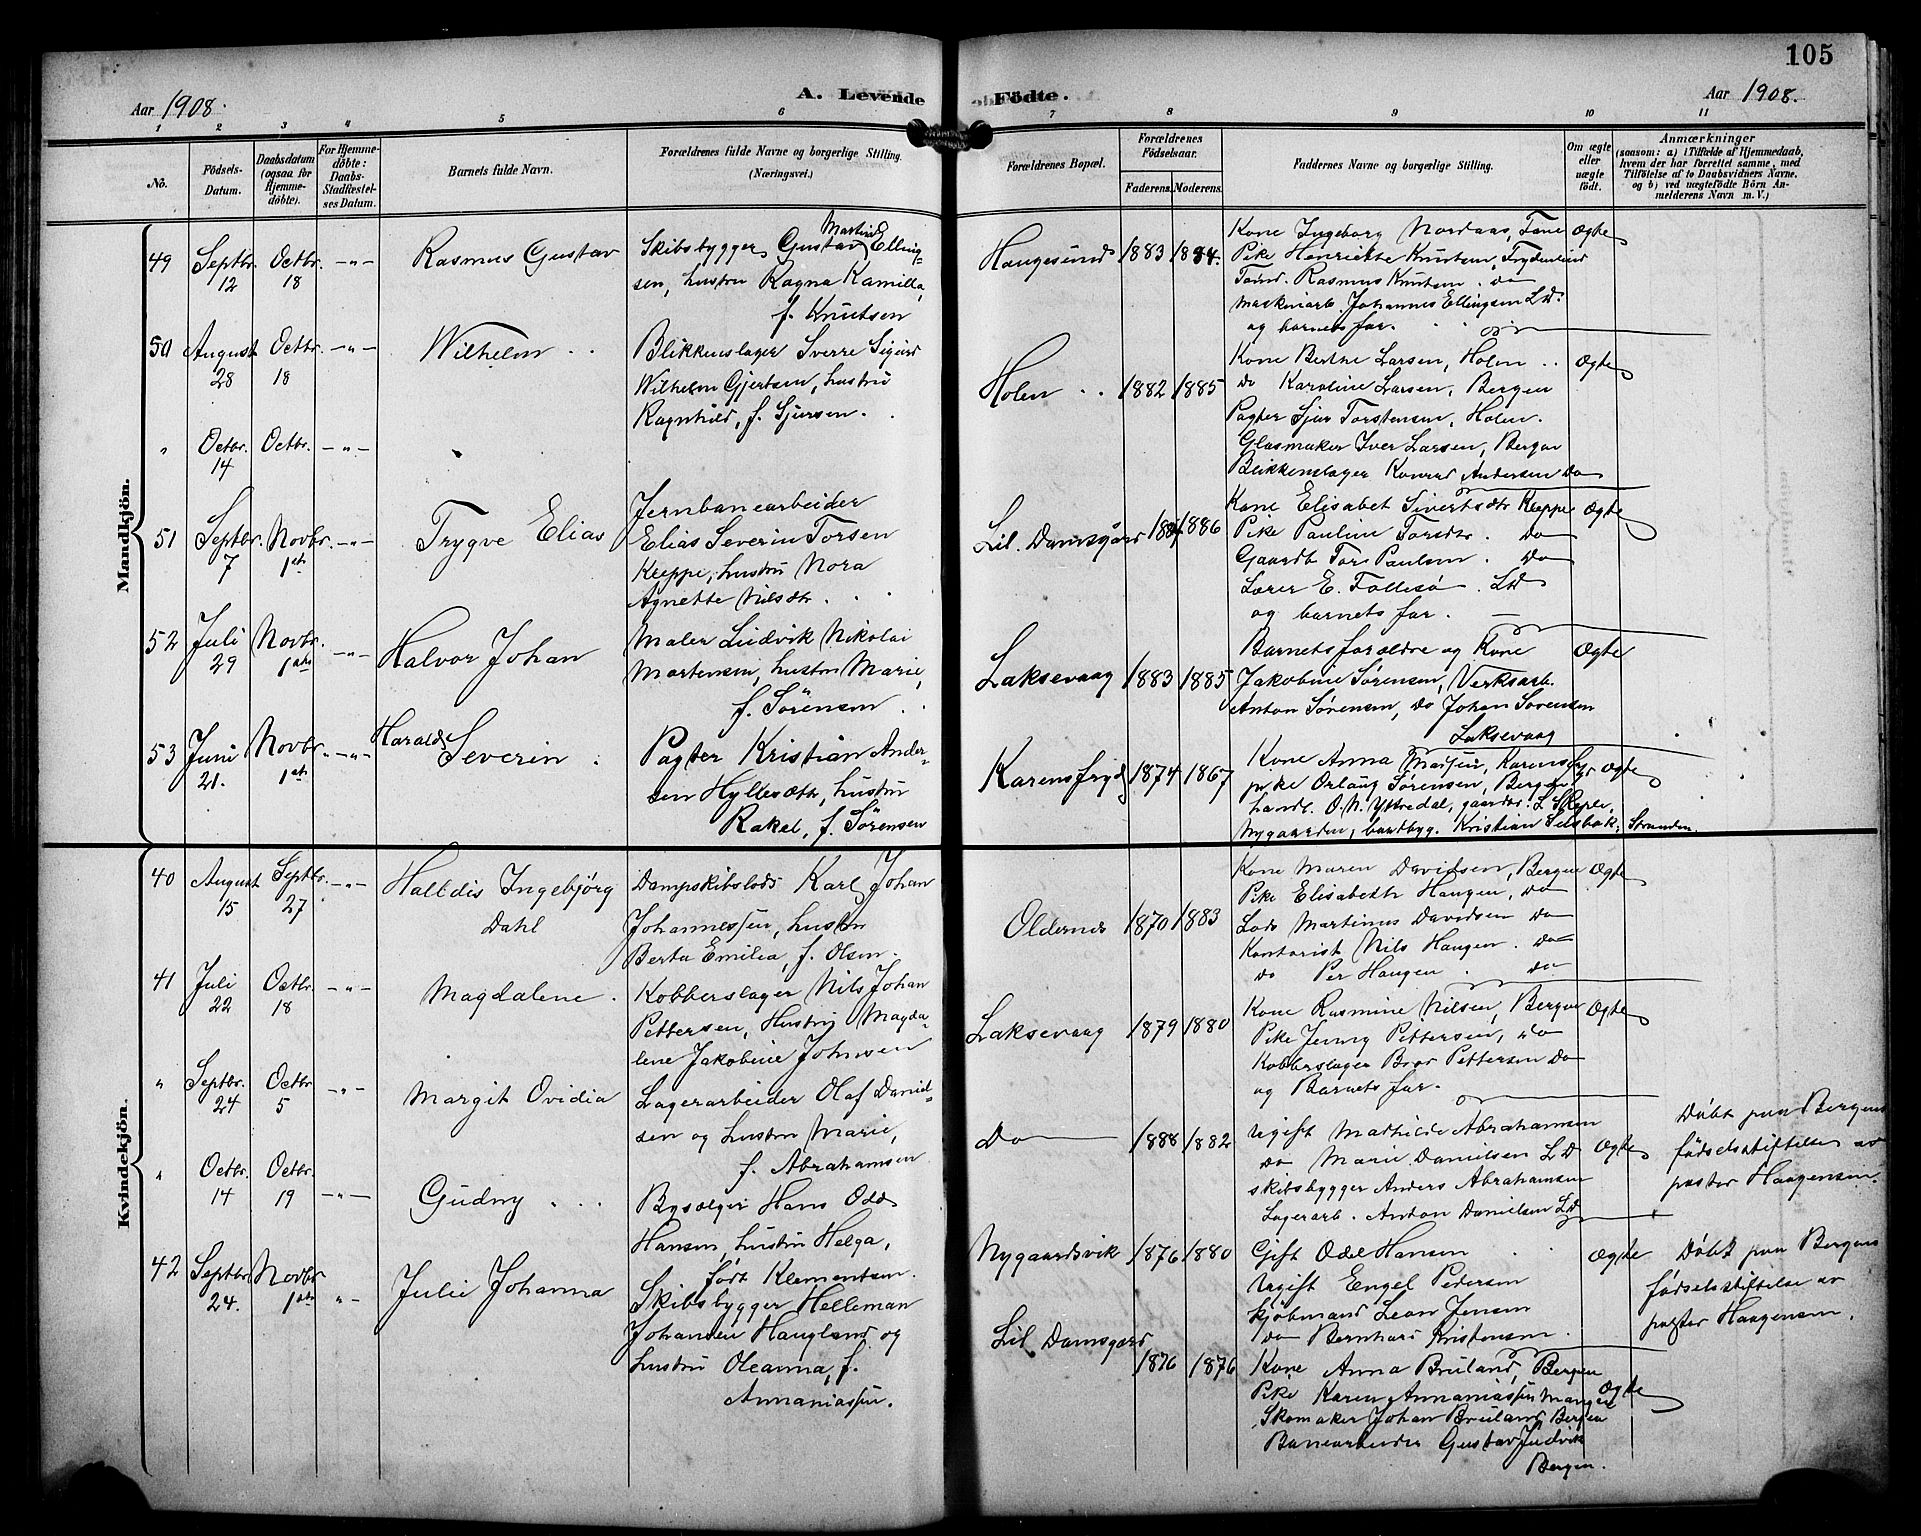 105
Aar 1908.
A. Levende Födte.
Aar 1908.
1 2 3 4 5 6 7 8 9 10 11
No.
Födsels-Datum.
Daabsdatum (ogsaa for Hjemmedöbte).
For Hjemmedöbte: Daabs-Stadfæstelses Datum.
Barnets fulde Navn.
Forældrenes fulde Navne og borgerlige Stilling. (Næringsvei.)
Forældrenes Bopæl.
Forældrenes Födselsaar.
Faderens. Moderens.
Faddernes Navne og borgerlige Stilling.
Om ægte eller uægte födt.
Anmærkninger
(saasom: a) i Tilfælde af Hjemmedaab, hvem der har forrettet samme, med Tilföielse af to Daabsvidners Navne, og b) ved uægtefödte Börn Anmelderens Navn m. V.)
Mandkjön.
49 Septbr. 12 Octbr. 18 -"- Rasmus Gustav
Skibsbygger Gustav Martin Elling-
sen, hustru Ragna Kamilla,
f. Knutsen
Haugesund 1883 1884.
Kone Ingeborg Nordaas, Fane
Pike Henriette Knutsen, Frydenlund
Tømd. Rasmus Knutsen. do
Maskinarb. Johannes Ellingsen LD.
og barnets far.
Ægte
50 August 28 Octbr. 18 -"- Wilhelm
Blikkenslager Sverre Sigurd
Wilhelm Gjertsen, hustru
Ragnhild, f. Sjursen.
Holen 1882 1885
Kone Berthe Larsen, Holen
do Karoline Larsen, Bergen
Pagter Sjur Torstensen, Holen.
Glasmaker Iver Larsen, Bergen
Blikkenslager Konrad Andersen Do
Ægte
" Octbr. 14 Octbr. -"-
51 Septbr. 7 Novbr. 1ste -"- Trygve Elias
Jernbanearbeider
Elias Severin Torsen
Kleppe, hustru Nora
Agnette Nilsdtr.
Lil. Damsgård 1886
Kone Elisabet Sivertsdtr Kleppe
Pike Pauline Torsdtr. Do
Gaardb Tor Paulsen. Do
Lærer E. Follesø. LD
og barnets far.
Ægte
52 Juli 29 Novbr. 1ste -"- Halvor Johan
Maler Ludvik Nikolai
Martensen, hustru Marie,
f. Sörensen
Laksevaag 1883 1885
Barnets forældre og Kone
Jakobine Sørensen, Verksarb.
Anton Sørensen, do Johan Sørensen
Laksevaag
Ægte
53 Juni 21. Novbr. 1ste -"- Harald Severin
Pagter Kristian Ander-
sen Hyllesæter, hustru
Rakel, f. Sörensen
Karensfryd 1874 1867
Kone Anna Karensfr.
pike Sørensen, Bergen
handl. O. N. Yttredal, gaardbr. L.
Nygaarden, baadbyg. Kristian Stranden.
Ægte
Kvindekjön.
40 August 15 Septbr. 27 -"- Halldis Ingebjörg
Dahl
Dampskibslods Karl Johan
Johannessen, hustru
Berta Emilia, f. Olsen.
Oldernes 1870 1883
Kone Maren Davidsen, Bergen
Pike Elisabeth Haugen, do
Lods Martinus Davidsen do
Kontorist Nils Haugen. do
do Per Haugen. do
Ægte
41 Juli 22 Octbr. 18 -"- Magdalene.
Kobberslager Nils Johan
Pettersen, Hustru Magda-
lene Jakobine Johnsen
Laksevaag 1879 1880
Kone Rasmine Nilsen, Bergen
Pike Jenny Pettersen, do
Kobberslager Bror Pettersen Do
og Barnets far.
Ægte
" Septbr. 24 Octbr 5 -"- Margit Ovidia
Lagerarbeider Olaf Daniel-
sen og hustru Marie,
f. Abrahamsen
Do 1888 1882
Ugift Mathilde Abrahamsen
Do Marie Danielsen LD
Skibsbygger Anders Abrahamsen
Lagerarb. Anton Danielsen LD
Ægte
Döbt paa Bergens
födselsstiftelse av
pastor Haagensen.
" Octbr. 14 Octbr. 19 -"- Gudny
Bysælger Hans Odd
Hansen, hustru Helga,
født Klementsen.
Nygaardsvik 1876 1880
Gift Odel Hansen
Ugift Engel Pedersen
Kjøbmand Leon Jensen
Do Bernhard Kristensen.
Ægte
Döbt paa Bergens
födselsstiftelse av
pastor Haagensen.
42 Septbr. 24. Novbr 1ste -"- Julie Johanna
Skibsbygger Helleman
Johansen Haugland og
hustru Oleanna, f.
Annaniassen.
Lil. Damsgård 1876 1876
Kone Anna Bruland, Bergen
Pike Karen Annaniassen Manger
Skomaker Johan Bruland Bergen
Banearbeider Gustav Ludvik
Bergen.
Ægte